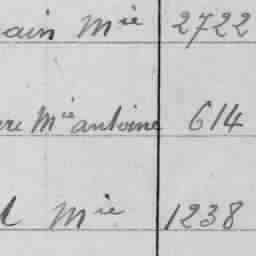 ain Mie 2722
re Mie antoine 614
l Mie 1238